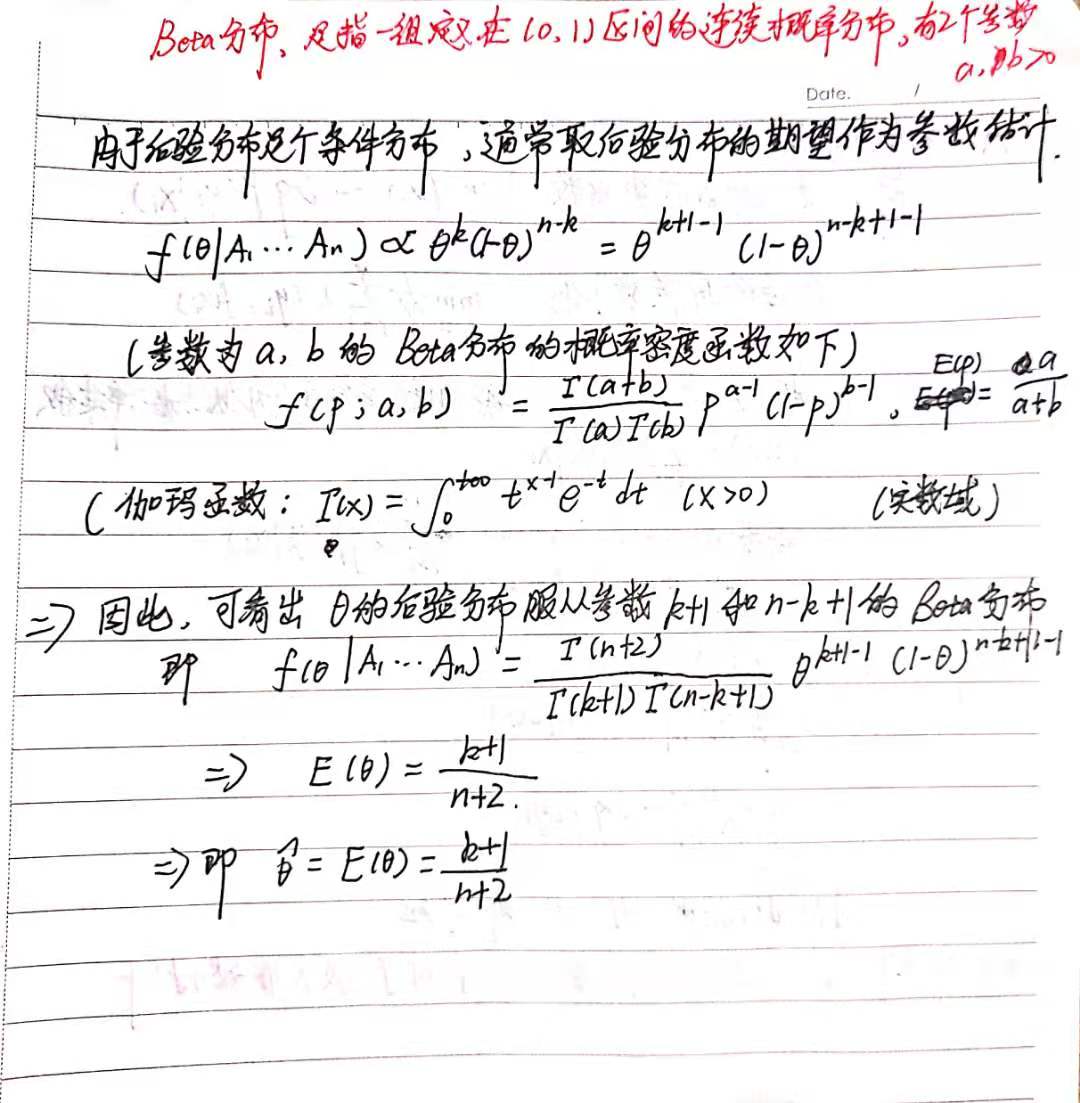 Beta分布,是指一组定义在(0,1)区间的连续概率分布,有2个参数
a, b>0
Date. /
由于后验分布是个条件分布,通常取后验分布的期望作为参数估计.
f(θ|A₁⋯Aₙ) ∝ θ^k(1-θ)^{n-k} = θ^{k+1-1} (1-θ)^{n-k+1-1}
(参数为a, b的 Beta分布的概率密度函数如下)
f(p; a, b) = \frac{Γ(a+b)}{Γ(a)Γ(b)} p^{a-1} (1-p)^{b-1}, E(p) = \frac{a}{a+b}
(伽玛函数: Γ(x) = ∫_0^{+∞} t^{x-1} e^{-t} dt (x>0) (实数域)
⇒ 因此,可看出 θ的后验分布服从参数 k+1 和 n-k+1 的 Beta分布
即 f(θ|A₁⋯Aₙ) = \frac{Γ(n+2)}{Γ(k+1)Γ(n-k+1)} θ^{k+1-1} (1-θ)^{n-k+1-1}
⇒ E(θ) = \frac{k+1}{n+2}.
⇒ 即 \hat{θ} = E(θ) = \frac{k+1}{n+2}